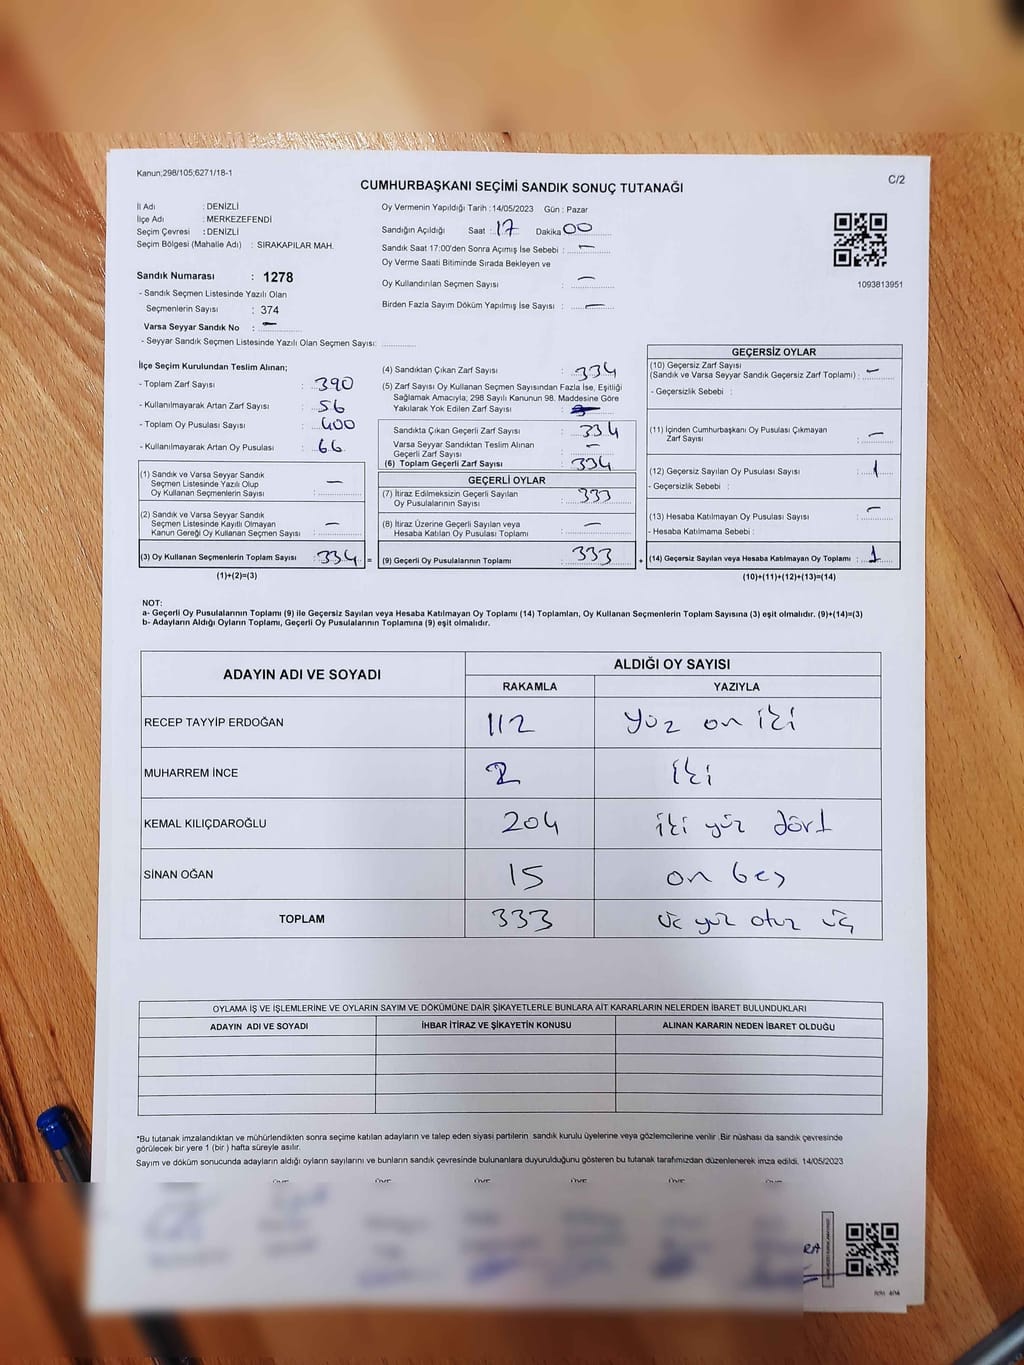 Kanun;298/105;6271/18-1
C/2
CUMHURBAŞKANI SEÇİMİ SANDIK SONUÇ TUTANAĞI
İl Adı : DENİZLİ
İlçe Adı : MERKEZEFENDİ
Seçim Çevresi : DENİZLİ
Seçim Bölgesi (Mahalle Adı) : SIRAKAPILAR MAH.
Sandık Numarası : 1278
- Sandık Seçmen Listesinde Yazılı Olan
Seçmenlerin Sayısı : 374
Varsa Seyyar Sandık No : —
- Seyyar Sandık Seçmen Listesinde Yazılı Olan Seçmen Sayısı: ............
Oy Vermenin Yapıldığı Tarih :14/05/2023 Gün : Pazar
Sandığın Açıldığı Saat : 17 Dakika 00
Sandık Saat 17:00'den Sonra Açımış İse Sebebi : —
Oy Verme Saati Bitiminde Sırada Bekleyen ve
Oy Kullandırılan Seçmen Sayısı : —
Birden Fazla Sayım Döküm Yapılmış İse Sayısı : —
1093813951
İlçe Seçim Kurulundan Teslim Alınan;
- Toplam Zarf Sayısı : 390
- Kullanılmayarak Artan Zarf Sayısı : 56
- Toplam Oy Pusulası Sayısı : 400
- Kullanılmayarak Artan Oy Pusulası : 66
(1) Sandık ve Varsa Seyyar Sandık
Seçmen Listesinde Yazılı Olup
Oy Kullanan Seçmenlerin Sayısı : —
(2) Sandık ve Varsa Seyyar Sandık
Seçmen Listesinde Kayıtlı Olmayan
Kanun Gereği Oy Kullanan Seçmen Sayısı : —
(3) Oy Kullanan Seçmenlerin Toplam Sayısı : 334 =
(1)+(2)=(3)
(4) Sandıktan Çıkan Zarf Sayısı : 334
(5) Zarf Sayısı Oy Kullanan Seçmen Sayısından Fazla İse, Eşitliği
Sağlamak Amacıyla; 298 Sayılı Kanunun 98. Maddesine Göre
Yakılarak Yok Edilen Zarf Sayısı :
Sandıkta Çıkan Geçerli Zarf Sayısı : 334
Varsa Seyyar Sandıktan Teslim Alınan
Geçerli Zarf Sayısı : —
(6) Toplam Geçerli Zarf Sayısı : 334
GEÇERLİ OYLAR
(7) İtiraz Edilmeksizin Geçerli Sayılan
Oy Pusulalarının Sayısı : 333
(8) İtiraz Üzerine Geçerli Sayılan veya
Hesaba Katılan Oy Pusulası Toplamı : —
(9) Geçerli Oy Pusulalarının Toplamı : 333 +
GEÇERSİZ OYLAR
(10) Geçersiz Zarf Sayısı
(Sandık ve Varsa Seyyar Sandık Geçersiz Zarf Toplamı) : —
- Geçersizlik Sebebi :
(11) İçinden Cumhurbaşkanı Oy Pusulası Çıkmayan
Zarf Sayısı : —
(12) Geçersiz Sayılan Oy Pusulası Sayısı : 1
- Geçersizlik Sebebi :
(13) Hesaba Katılmayan Oy Pusulası Sayısı : —
- Hesaba Katılmama Sebebi :
(14) Geçersiz Sayılan veya Hesaba Katılmayan Oy Toplamı : 1
(10)+(11)+(12)+(13)=(14)
NOT:
a- Geçerli Oy Pusulalarının Toplamı (9) ile Geçersiz Sayılan veya Hesaba Katılmayan Oy Toplamı (14) Toplamları, Oy Kullanan Seçmenlerin Toplam Sayısına (3) eşit olmalıdır. (9)+(14)=(3)
b- Adayların Aldığı Oyların Toplamı, Geçerli Oy Pusulalarının Toplamına (9) eşit olmalıdır.
ADAYIN ADI VE SOYADI ALDIĞI OY SAYISI
RAKAMLA YAZIYLA
RECEP TAYYİP ERDOĞAN 112 Yüz on iki
MUHARREM İNCE 2 iki
KEMAL KILIÇDAROĞLU 204 iki yüz dört
SİNAN OĞAN 15 on beş
TOPLAM 333 üç yüz otuz üç
OYLAMA İŞ VE İŞLEMLERİNE VE OYLARIN SAYIM VE DÖKÜMÜNE DAİR ŞİKAYETLERLE BUNLARA AİT KARARLARIN NELERDEN İBARET BULUNDUKLARI
ADAYIN ADI VE SOYADI İHBAR İTİRAZ VE ŞİKAYETİN KONUSU ALINAN KARARIN NEDEN İBARET OLDUĞU
*Bu tutanak imzalandıktan ve mühürlendikten sonra seçime katılan adayların ve talep eden siyasi partilerin sandık kurulu üyelerine veya gözlemcilerine verilir .Bir nüshası da sandık çevresinde
görülecek bir yere 1 (bir ) hafta süreyle asılır.
Sayım ve döküm sonucunda adayların aldığı oyların sayılarını ve bunların sandık çevresinde bulunanlara duyurulduğunu gösteren bu tutanak tarafımızdan düzenlenerek imza edildi. 14/05/2023